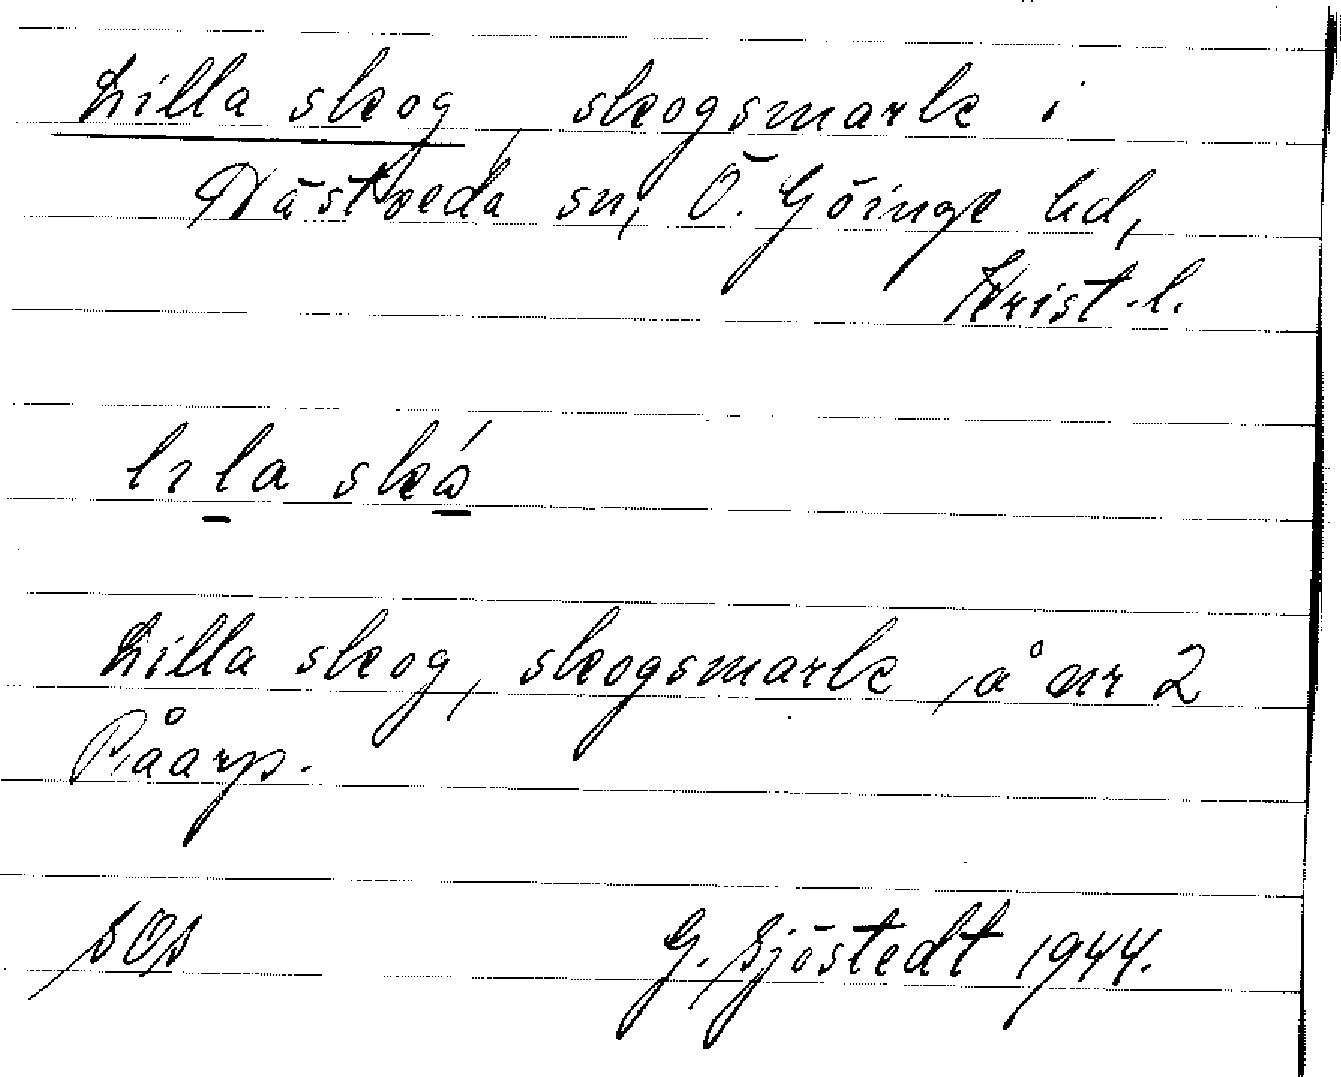 Lilla skog, skogsmark i
Nästveda sn, Ö. Göinge hd,
Krist. l.
lıla skó
Lilla skog, skogsmark, å nr 2
Påarp.
SOS
G. Sjöstedt 1944.